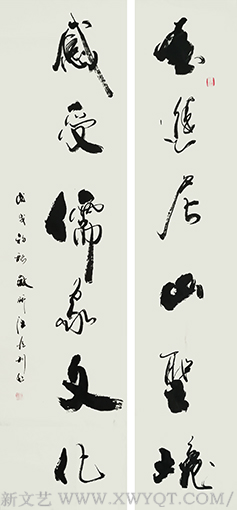 走進尼山聖境
感受儒家文化
戊戌初秋
新文艺 WWW.XWYQT.COM